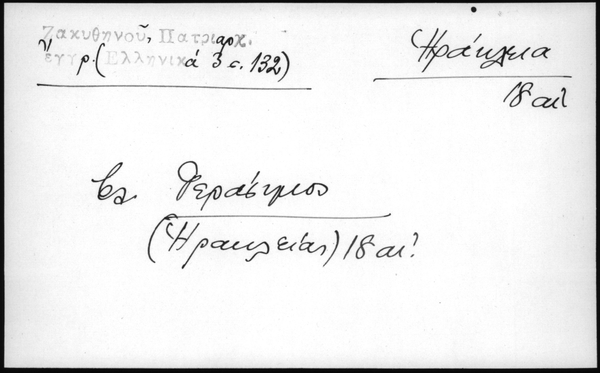 Ζακυθηνοῦ, Πατριαρχ.
ἔγγρ. (Ἑλληνικά 3 σ. 132)
Ἡράκλεια
18 αἰ.
βλ. Γεράσιμος
(Ἡρακλείας) 18 αἰ.